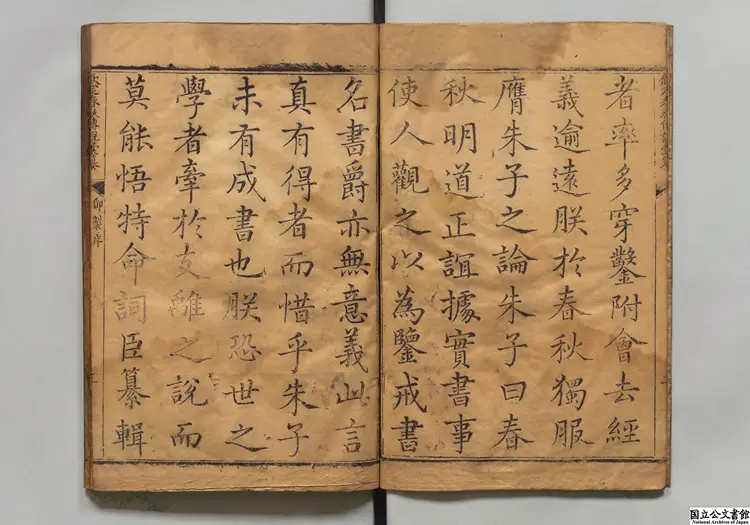 者率多穿鑿附會去經
義逾遠朕於春秋獨服
膺朱子之論朱子曰春
秋明道正誼據實書事
使人觀之以為鑒戒書
名書爵亦無意義此言
真有得者而惜乎朱子
未有成書也朕恐世之
學者牽於支離之說而
莫能悟特命詞臣纂輯
御製序
国立公文書館
National Archives of Japan